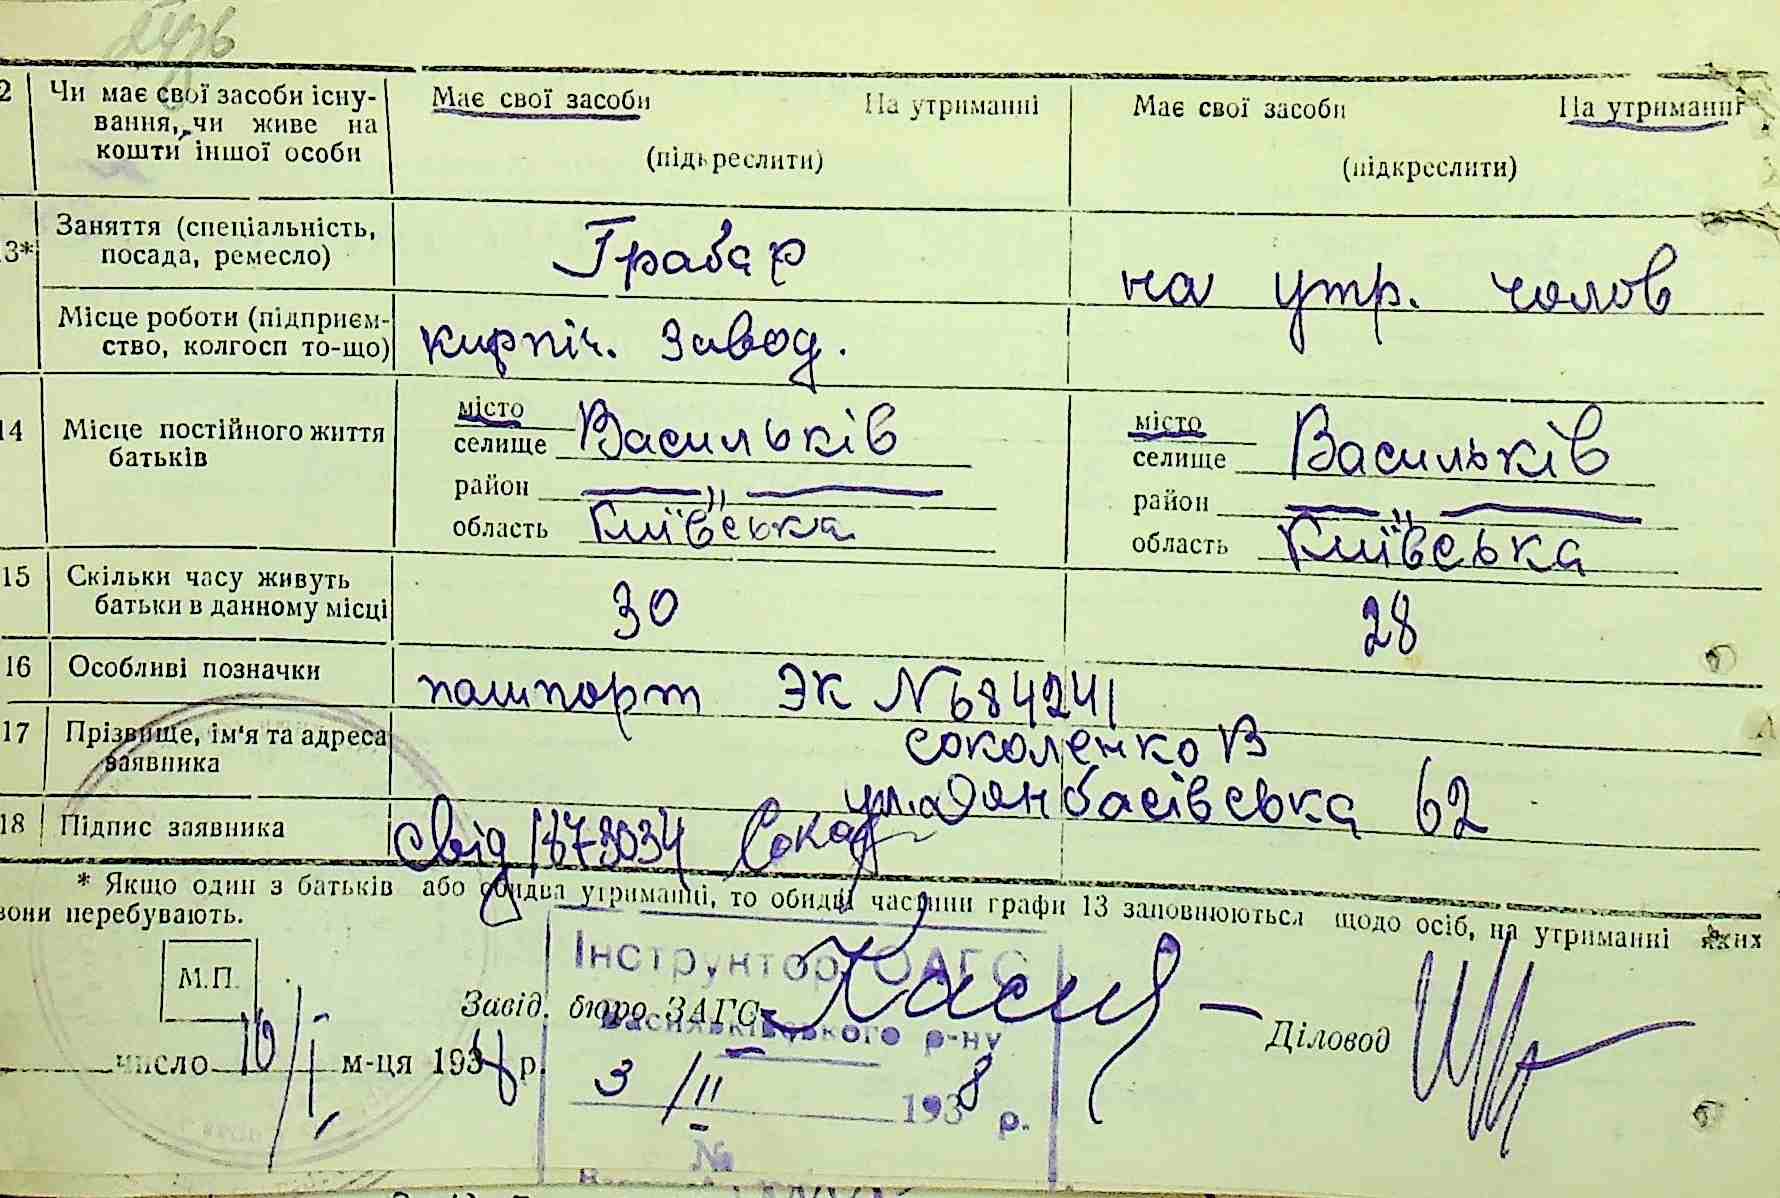 2 Чи має свої засоби існу- Має свої засоби На утриманні Має свої засоби На утриманні
вання, чи живе на
кошти іншої особи (підкреслити) (підкреслити)
13* Заняття (спеціальність, Грабар на утр. чолов
посада, ремесло)
Місце роботи (підприєм- кирпіч. завод.
ство, колгосп то-що)
14 Місце постійного життя місто Васильків місто Васильків
батьків селище селище
район —„— район —„—
область Київська область Київська
15 Скільки часу живуть 30 28
батьки в данному місці
16 Особливі позначки пашпорт ЭК № 684241
17 Прізвище, ім'я та адреса Соколенко В
заявника 62
18 Підпис заявника свід 1873034
* Якщо один з батьків або обидва утриманні, то обидві частини графи 13 заповнюються щодо осіб, на утриманні яких
вони перебувають.
Інструктор ОАГС
М.П. Завід. бюро ЗАГС
Васильківського р-ну
Діловод
число 10/I м-ця 1938 р.
3/II 1938 р.
№